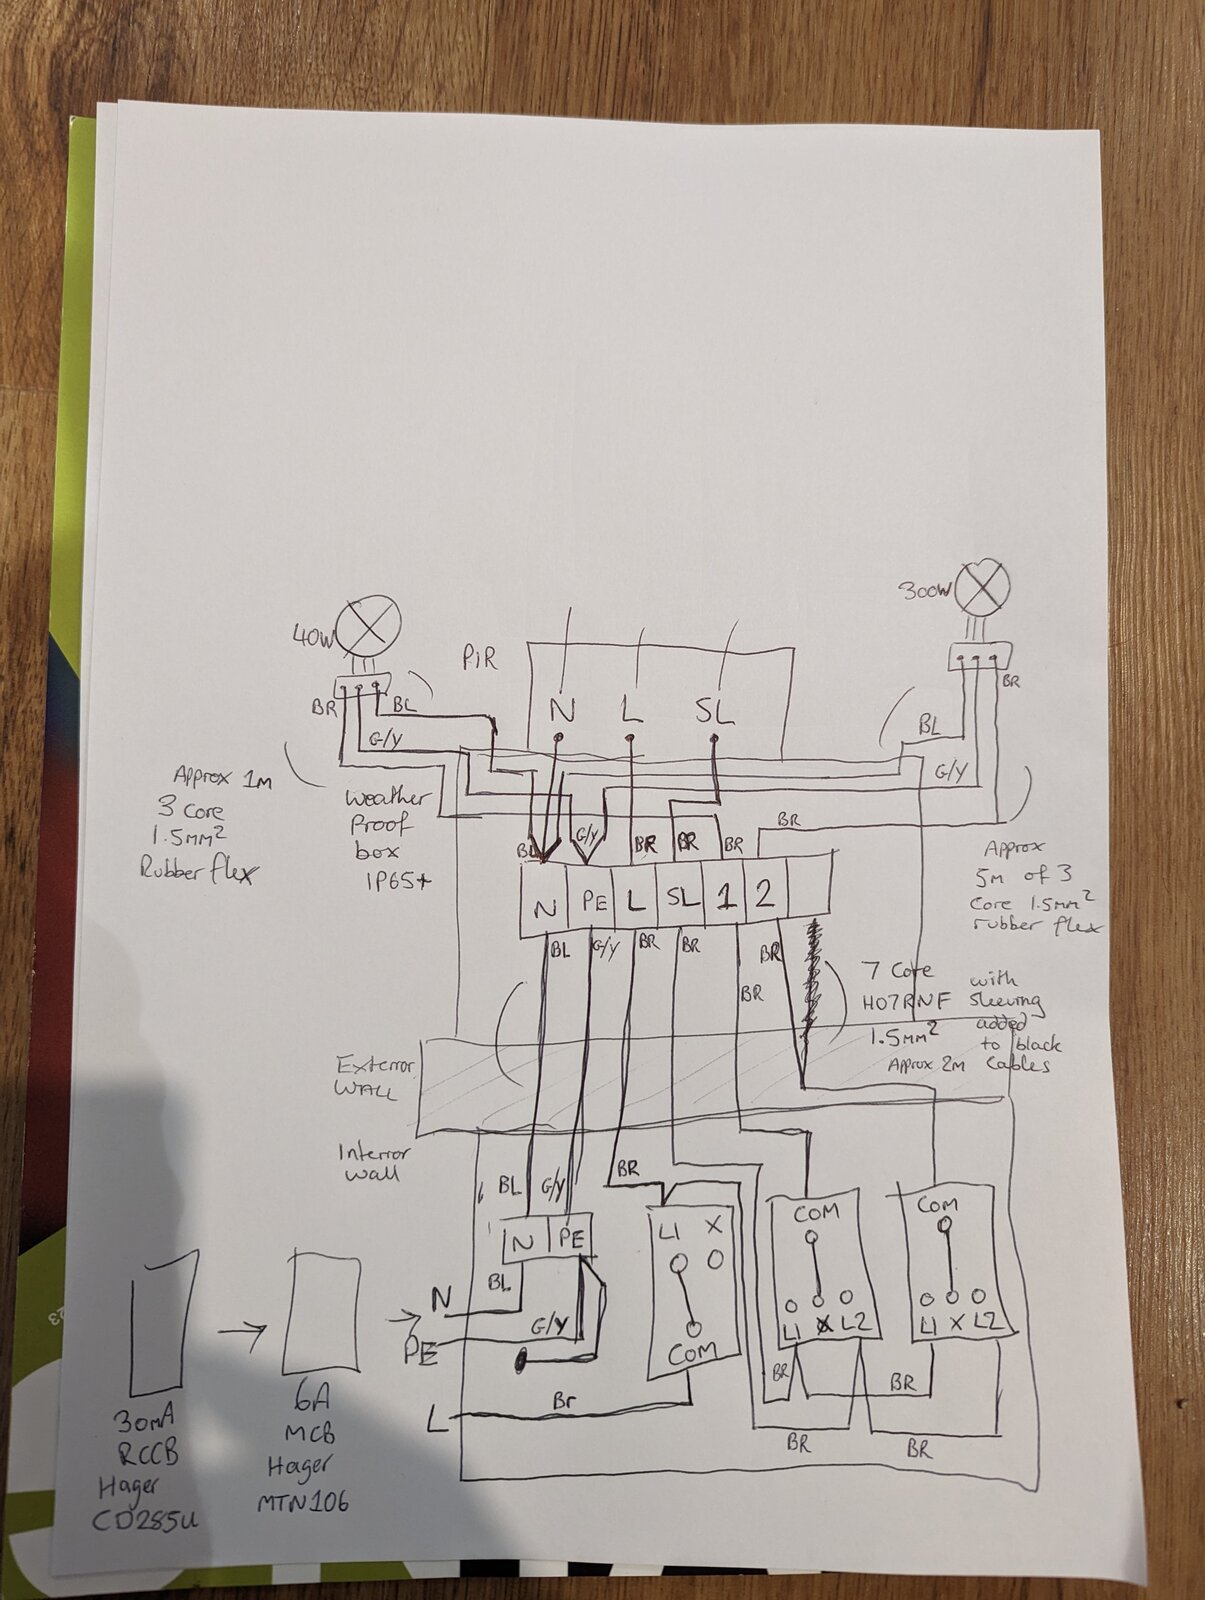 300W
40W
PiR
BR
BL
BR
G/Y
N
L
SL
BL
G/Y
Approx 1m
3 core
1.5mm²
Rubber flex
Weather
Proof
box
IP65+
BL
G/Y
BR
BR
BR
BR
Approx
5m of 3
Core 1.5mm²
rubber flex
N
PE
L
SL
1
2
BL
G/Y
BR
BR
BR
BR
7 Core
H07RNF
1.5mm²
Approx 2m
with
sleeving
added
to black
Cables
Exterior
WALL
Interror
wall
BL
G/Y
BR
N
PE
L1
X
COM
COM
L1
X
L2
COM
L1
X
L2
N
BL
PE
G/Y
L
Br
BR
BR
BR
BR
30mA
RCCB
Hager
CD285U
6A
MCB
Hager
MTN106
23